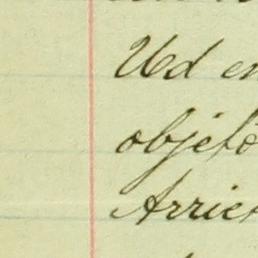 Ud en
objeto
Arrie